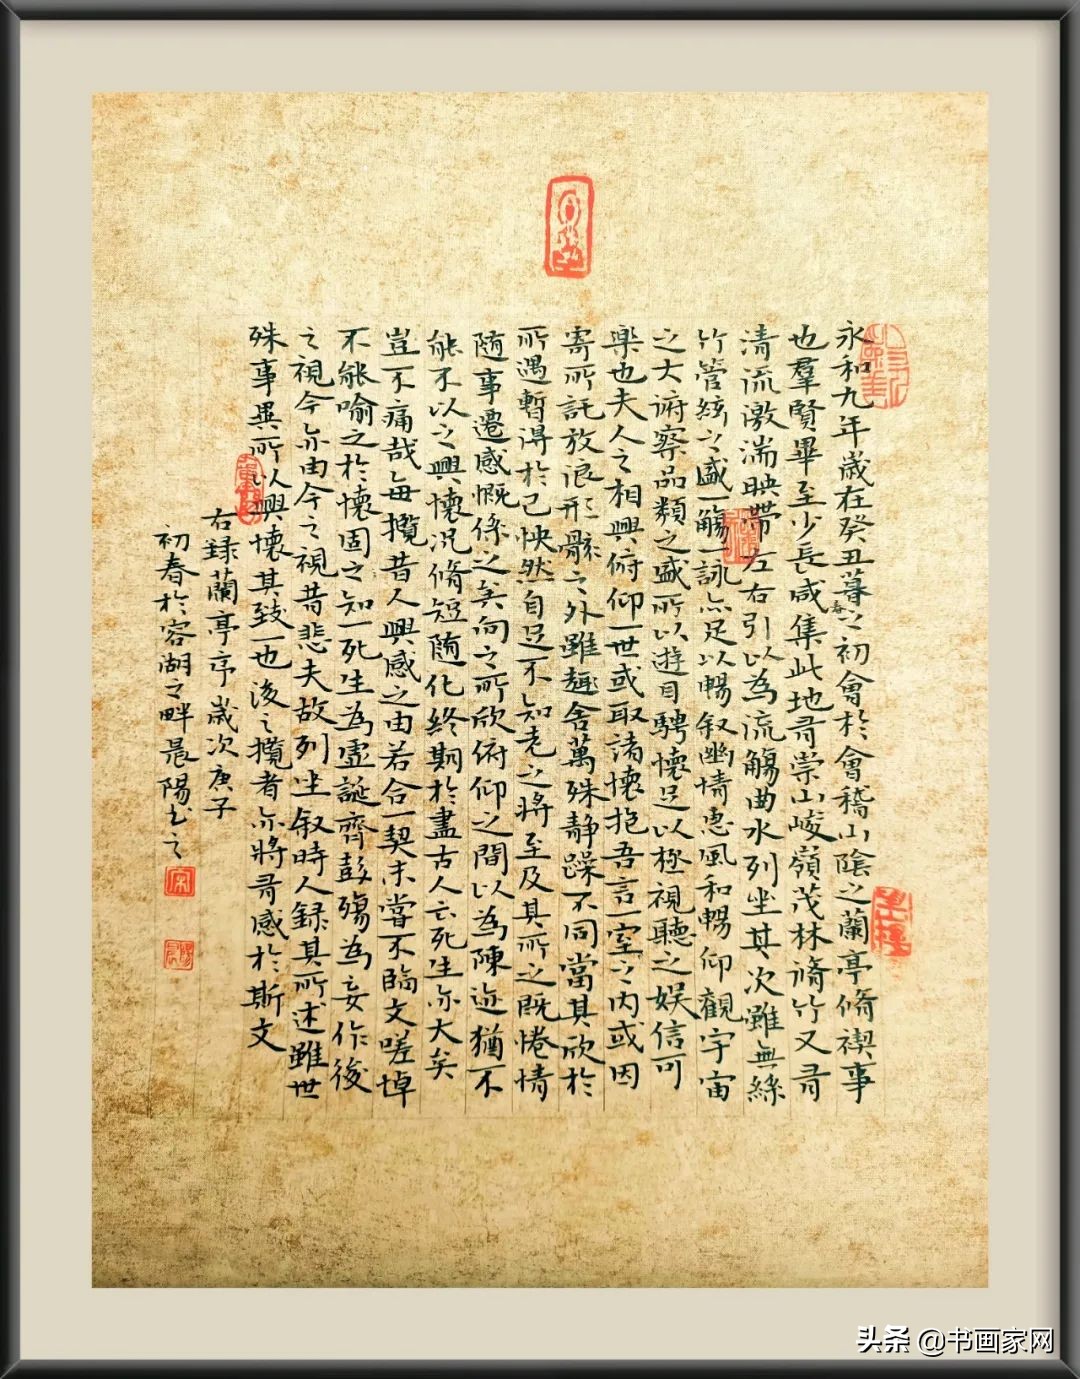 永和九年歲在癸丑暮春之初會於會稽山陰之蘭亭脩禊事
也羣賢畢至少長咸集此地有崇山峻嶺茂林脩竹又有
清流激湍映帶左右引以為流觴曲水列坐其次雖無絲
竹管絃之盛一觴一詠亦足以暢叙幽情惠風和暢仰觀宇宙
之大俯察品類之盛所以遊目騁懷足以極視聽之娛信可
樂也夫人之相與俯仰一世或取諸懷抱吾言一室之內或因
寄所託放浪形骸之外雖趣舍萬殊靜躁不同當其欣於
所遇暫得於己怏然自足不知老之將至及其所之既惓情
隨事遷感慨係之矣向之所欣俯仰之間以為陳迹猶不
能不以之興懷況脩短隨化終期於盡古人云死生亦大矣
豈不痛哉每攬昔人興感之由若合一契未嘗不臨文嗟悼
不能喻之於懷固知一死生為虛誕齊彭殤為妄作後
之視今亦由今之視昔悲夫故列坐叙時人錄其所述雖世
殊事異所以興懷其致一也後之攬者亦將有感於斯文
右録蘭亭序歲次庚子
初春於容湖之畔晨陽书之
头条 @书画家网